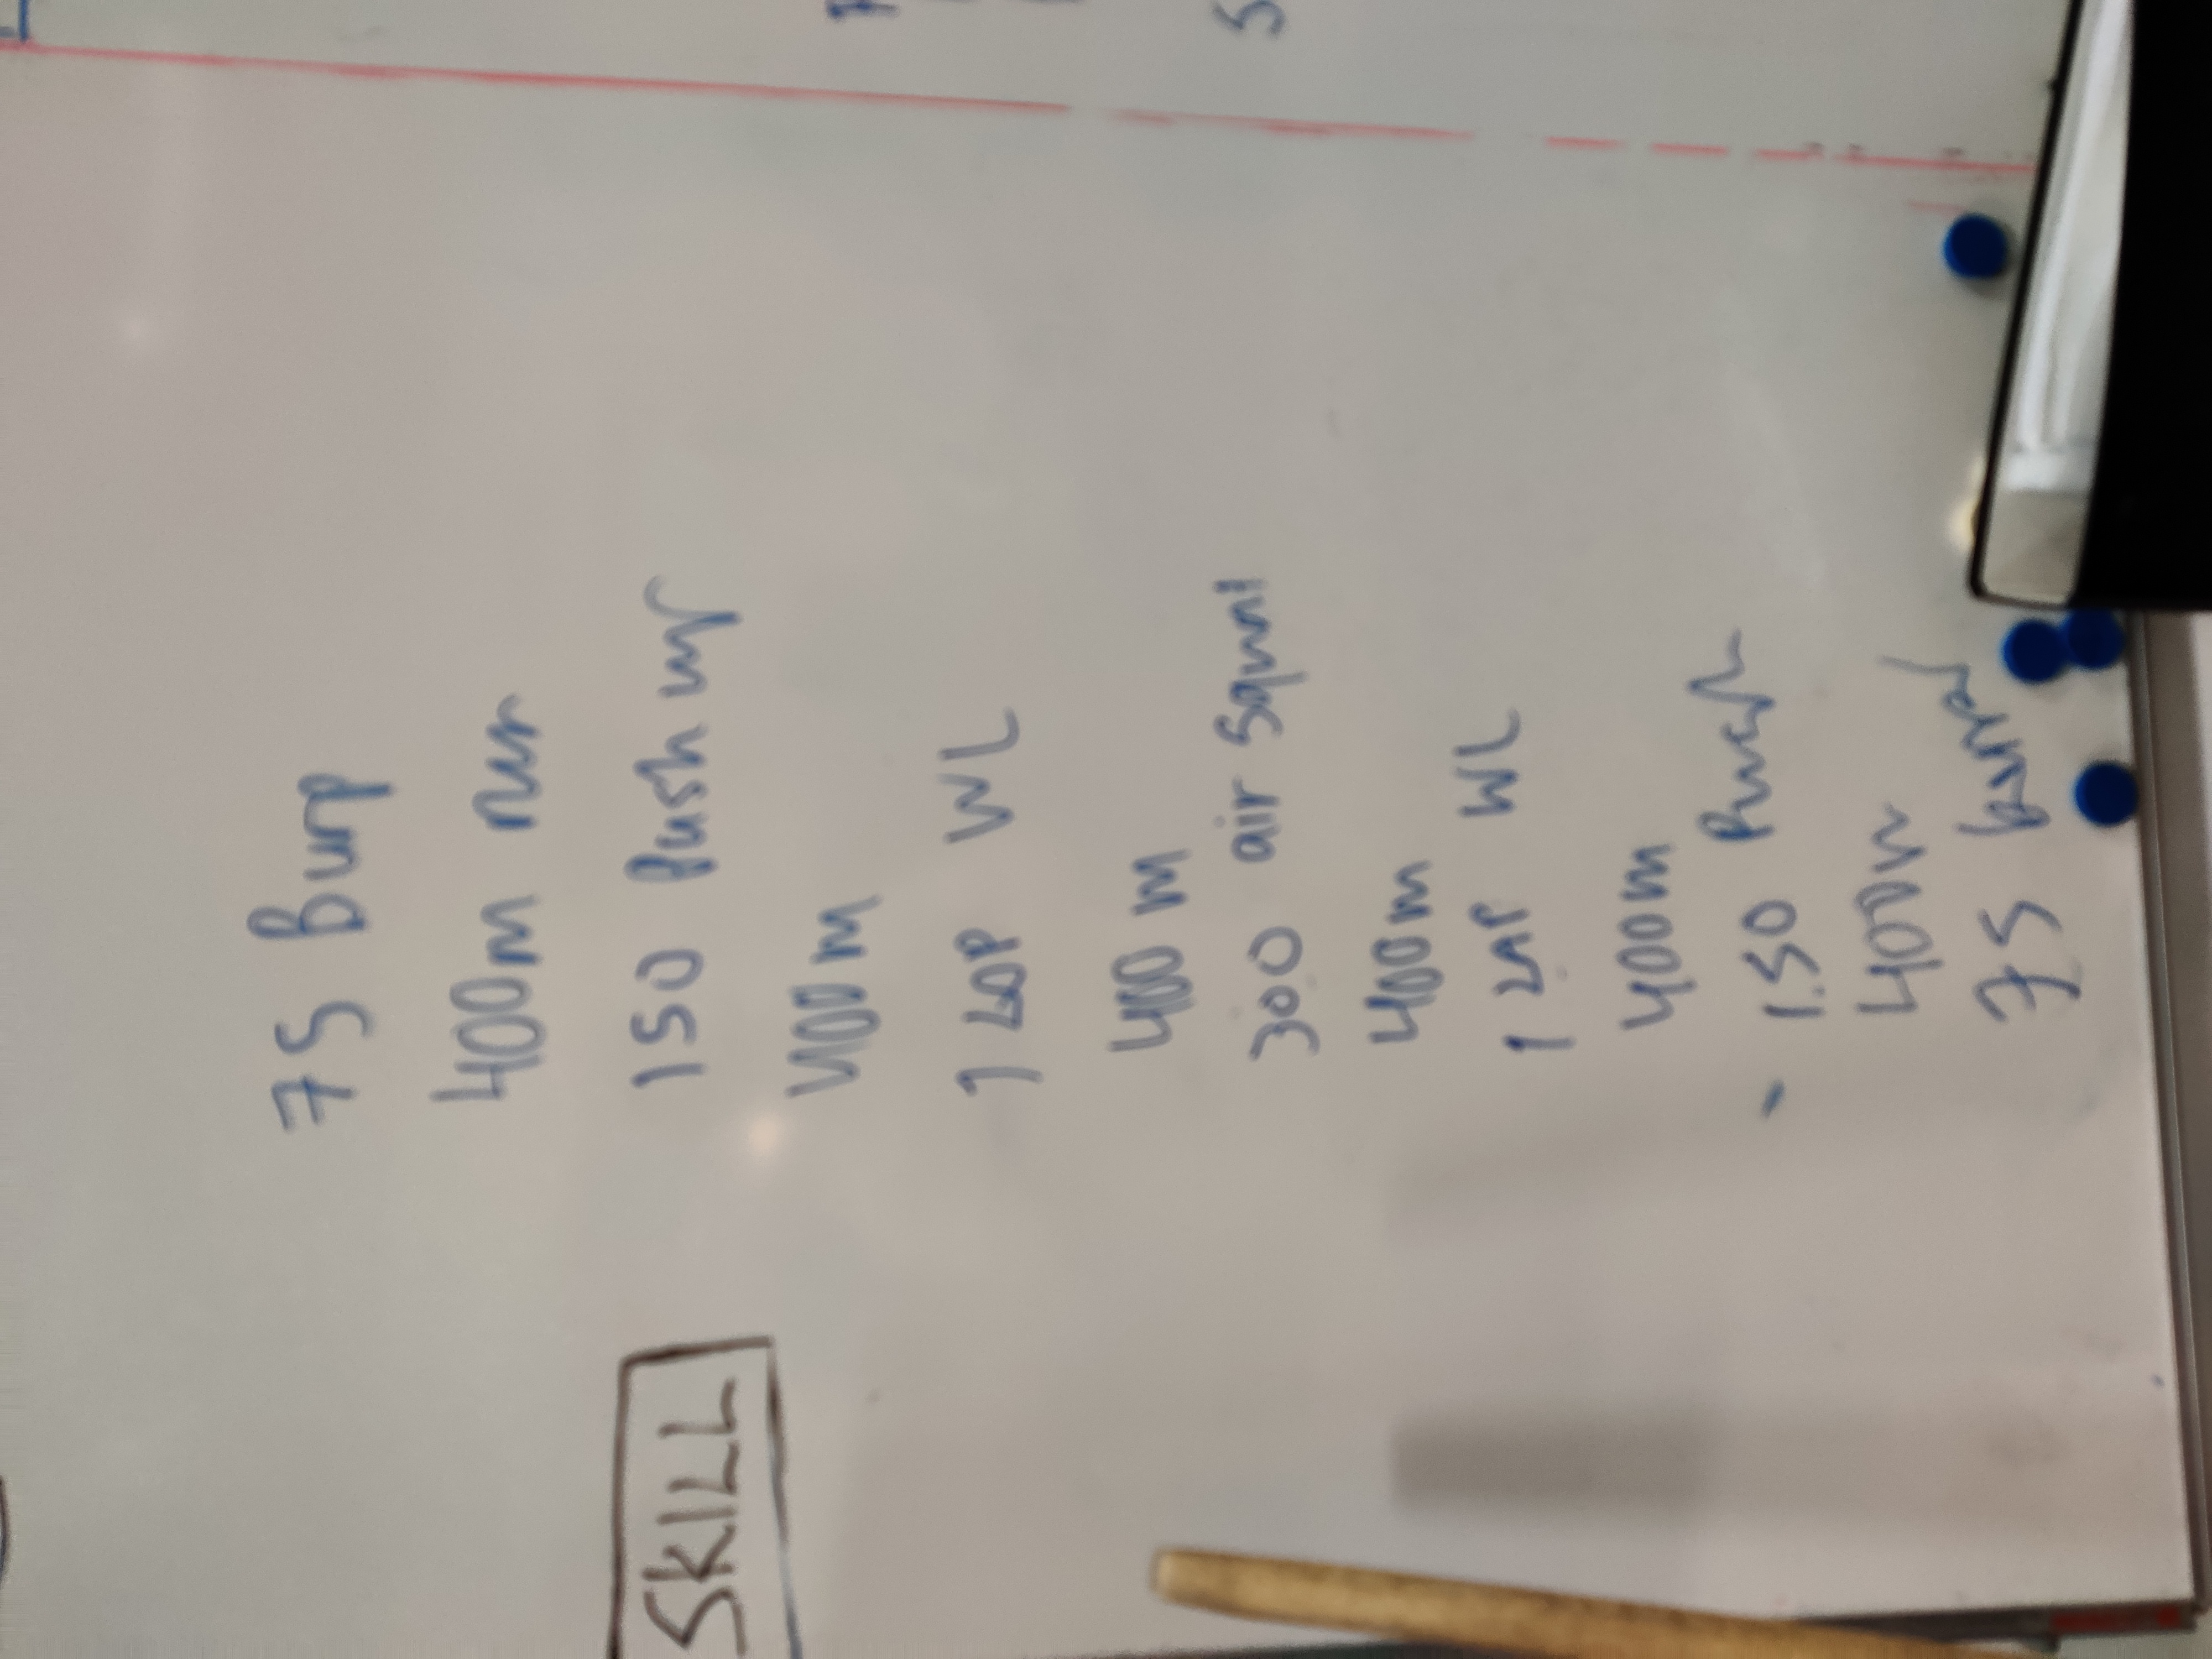 75 Burp
400m run
150 Push up
400m
1 LAP WL
400 m
300 air squat
400m
1 LAP WL
400m
150 Push
400m
75 burp
SKILL